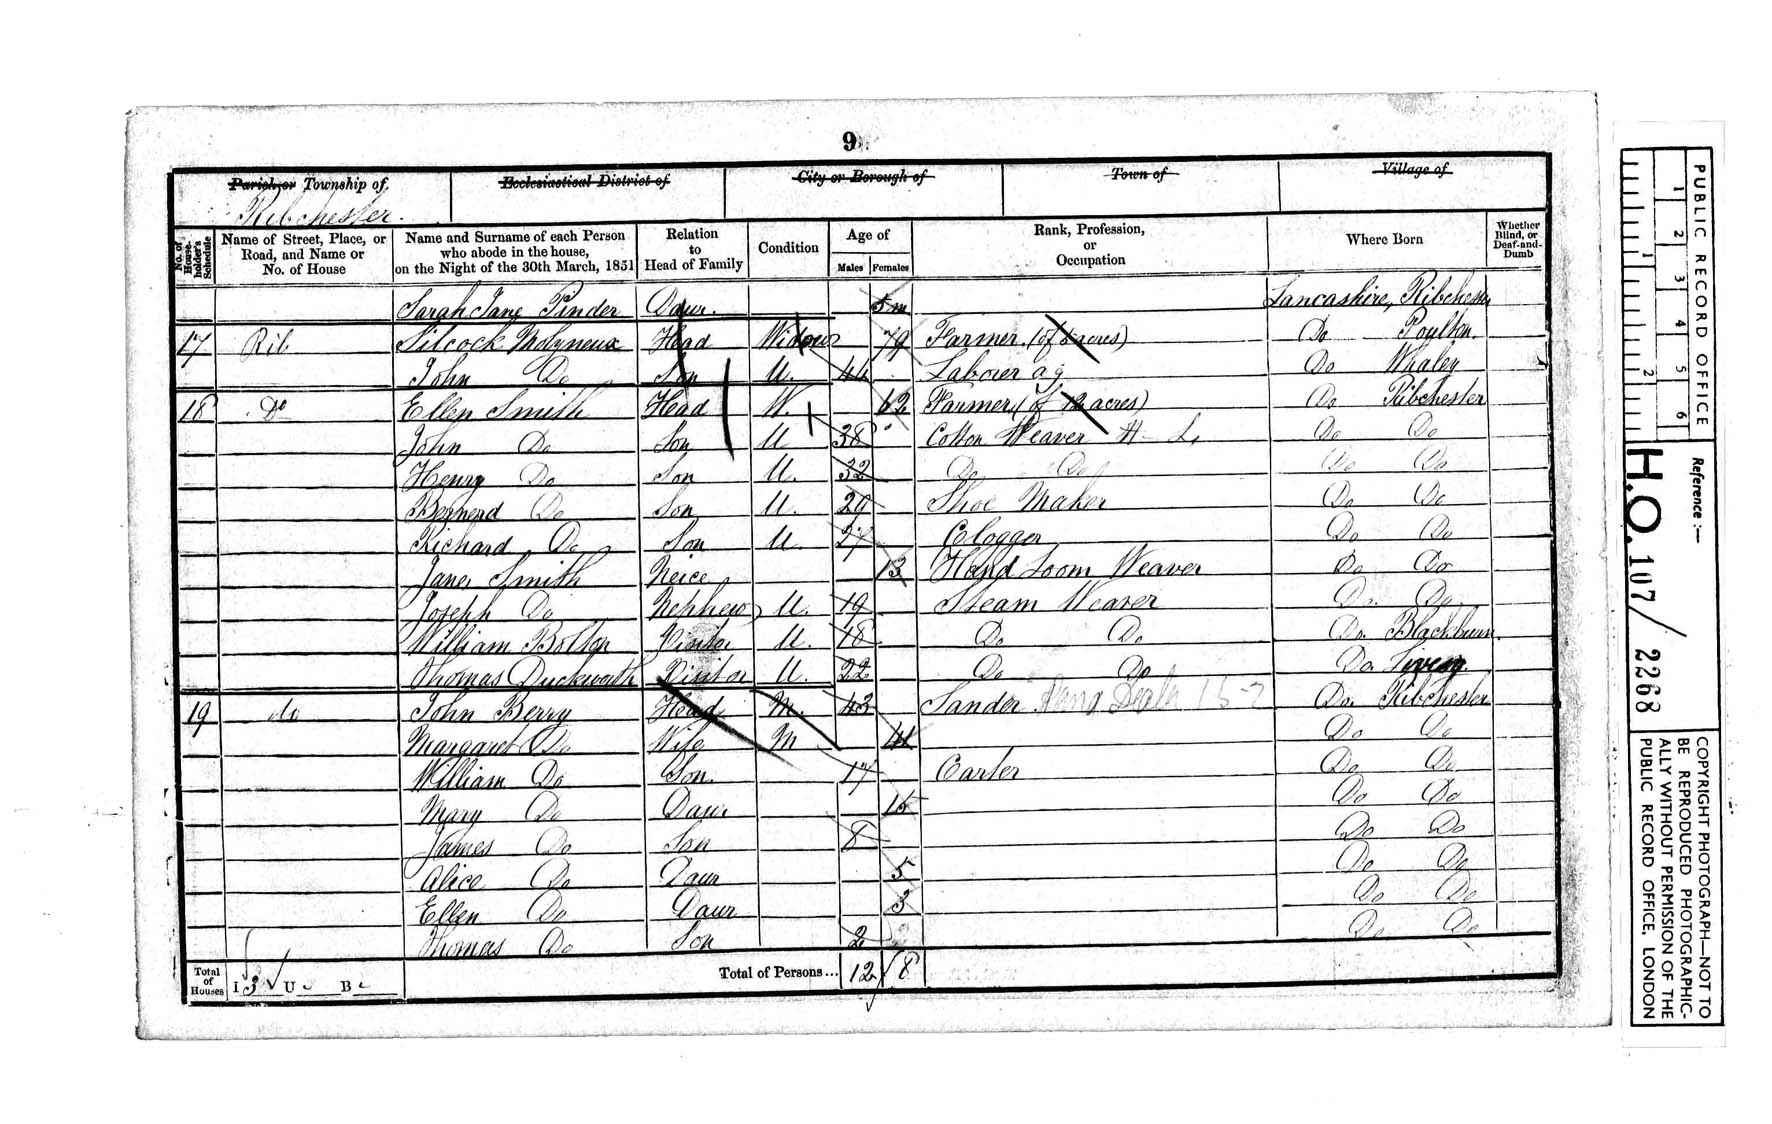 9
Parish or Township of
Ecclesiastical District of
City or Borough of
Town of
Village of
Ribchester.
No. of House-holder's Schedule
Name of Street, Place, or Road, and Name or No. of House
Name and Surname of each Person who abode in the house, on the Night of the 30th March, 1851
Relation to Head of Family
Condition
Age of
Males Females
Rank, Profession, or Occupation
Where Born
Whether Blind, or Deaf-and-Dumb
Sarah Jane Pinder Daur. 5 m Lancashire, Ribchester
17 Rib Silcock Molyneux Head Widow 79 Farmer (of acres) Do Poulton.
John Do Son U. 44 Labourer ag Do Whaley
18 Do Ellen Smith Head W. 62 Farmer (of 12 acres) Do Ribchester
John Do Son U 38 Cotton Weaver H L Do Do
Henry Do Son U. 32 Do Do Do Do
Do Son U. 29 Shoe Maker Do Do
Richard Do Son U. 27 Clogger Do Do
Jane Smith Neice 13 Hand Loom Weaver Do Do
Joseph Do Nephew U. 19 Steam Weaver Do. Do
William Bolton Visitor U. 18 Do Do Do. Blackburn.
Thomas Duckworth Visitor U. 22 Do Do Do
19 do John Berry Head M. 43 Sander Do. Ribchester
Margaret Do Wife M 41 Do Do
William Do Son. 17 Carter Do Do
Mary Do Daur. 15 Do Do
James Do Son 8 Do Do
Alice Do Daur 5 Do Do
Ellen Do Daur 3 Do Do
Thomas Do Son 2 Do Do
Total of Houses I 3 U B
Total of Persons... 12 8
PUBLIC RECORD OFFICE
1 2 3 4 5 6
1 2
Reference :—
H.O. 107/2268
COPYRIGHT PHOTOGRAPH—NOT TO
BE REPRODUCED PHOTOGRAPHIC-
ALLY WITHOUT PERMISSION OF THE
PUBLIC RECORD OFFICE, LONDON